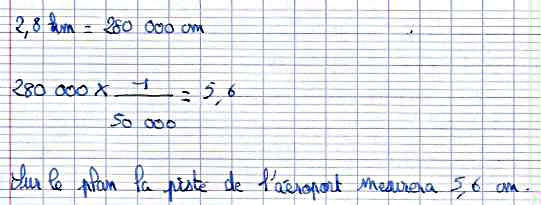 2,8 km = 280 000 cm
280 000 × 1/50 000 = 5,6
Sur le plan la piste de l'aéroport mesurera 5,6 cm.